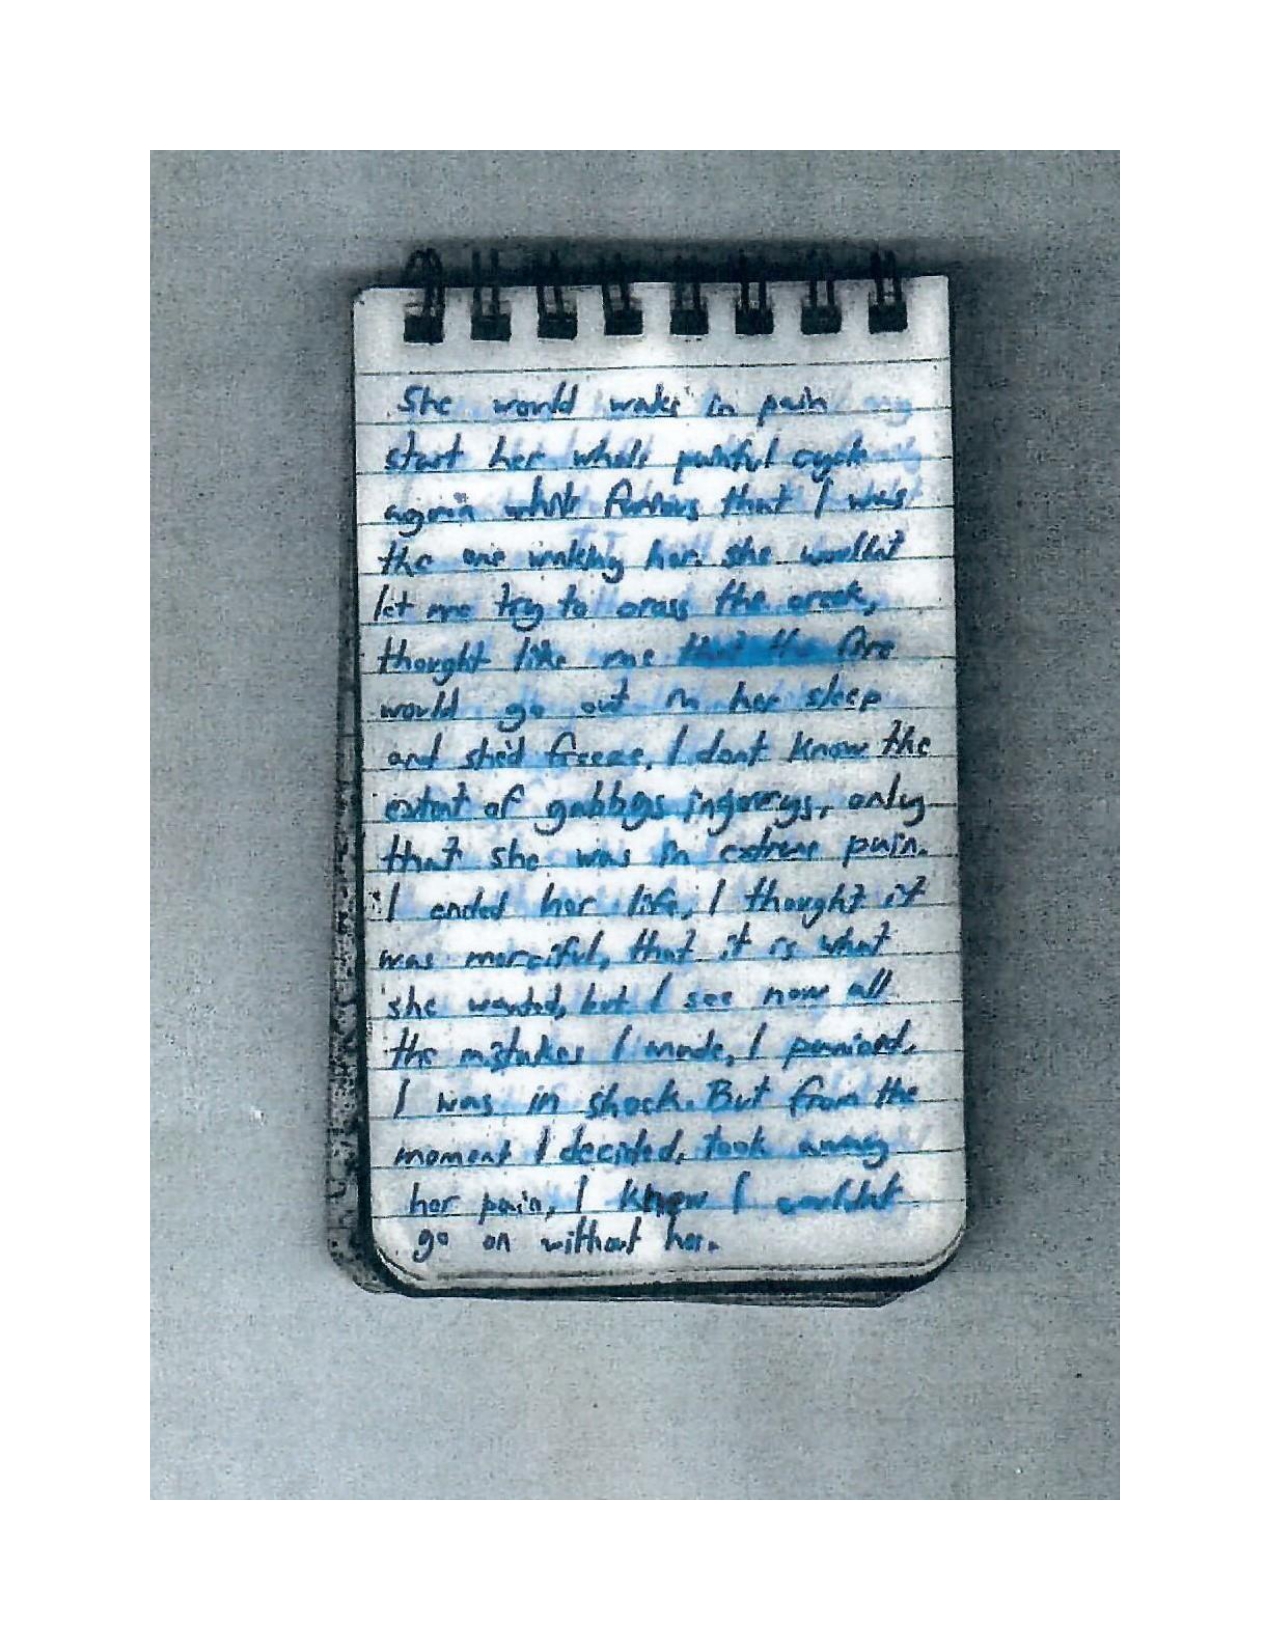 She would wake in pain
start her whole painful cycle
again while furious that I was
the one waking her. she wouldnt
let me try to cross the creek,
thought like me that the fire
would go out in her sleep
and she'd freeze. I dont know the
extent of gabbys ingurys, only
that she was in extreme pain.
I ended her life, I thought it
was merciful, that it is what
she wanted, but I see now all
the mistakes I made. I paniced.
I was in shock. But from the
moment I decided, took away
her pain, I knew I wouldnt
go on without her.